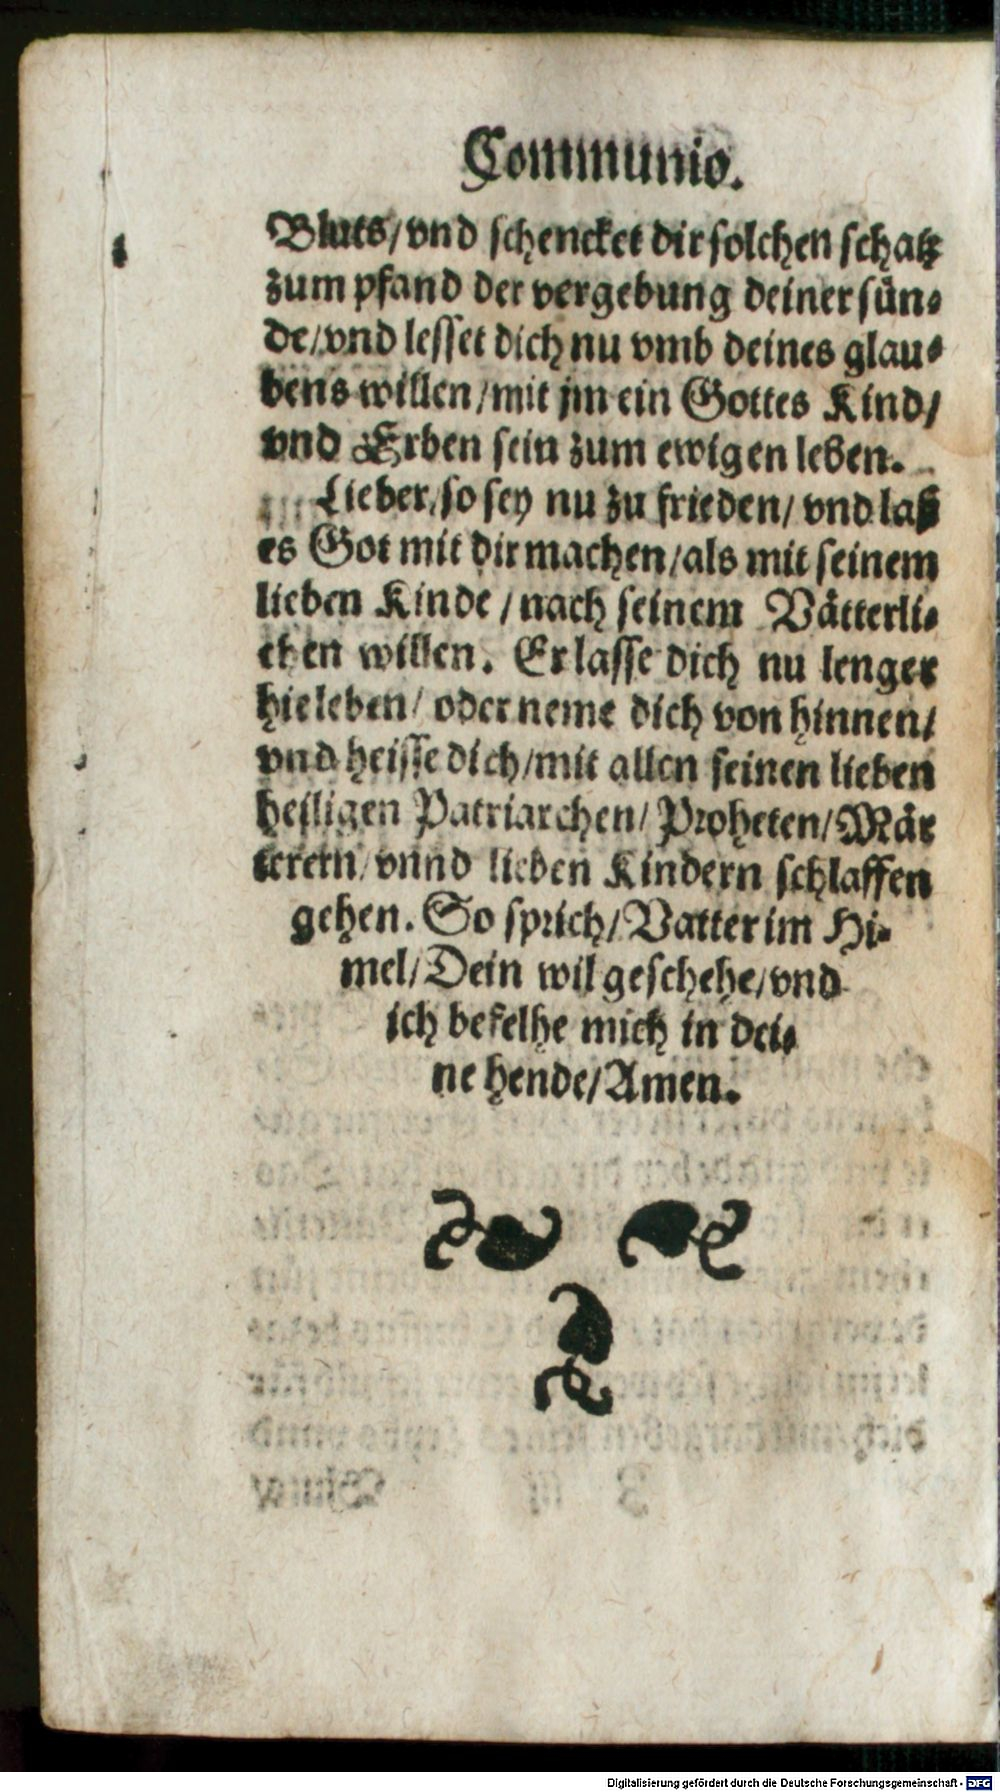 Communio.
Bluts/vnd schencket dir solchen schatz
zum pfand der vergebung deiner sün⸗
de/vnd lesset dich nu vmb deines glau⸗
bens willen/mit jm ein Gottes Kind/
vnd Erben sein zum ewigen leben.
Lieber/so sey nu zu frieden/vnd laß
es Got mit dir machen/als mit seinem
lieben Kinde/nach seinem Vätterli⸗
chen willen. Er lasse dich nu lenger
hie leben/oder neme dich von hinnen/
vnd heisse dich/mit allen seinen lieben
heiligen Patriarchen/Proheten/Mär
terern/vnnd lieben Kindern schlaffen
gehen. So sprich/Vatter im Hi⸗
mel/Dein wil geschehe/vnd
ich befelhe mich in dei⸗
ne hende/Amen.
Digitalisierung gefördert durch die Deutsche Forschungsgemeinschaft - DFG